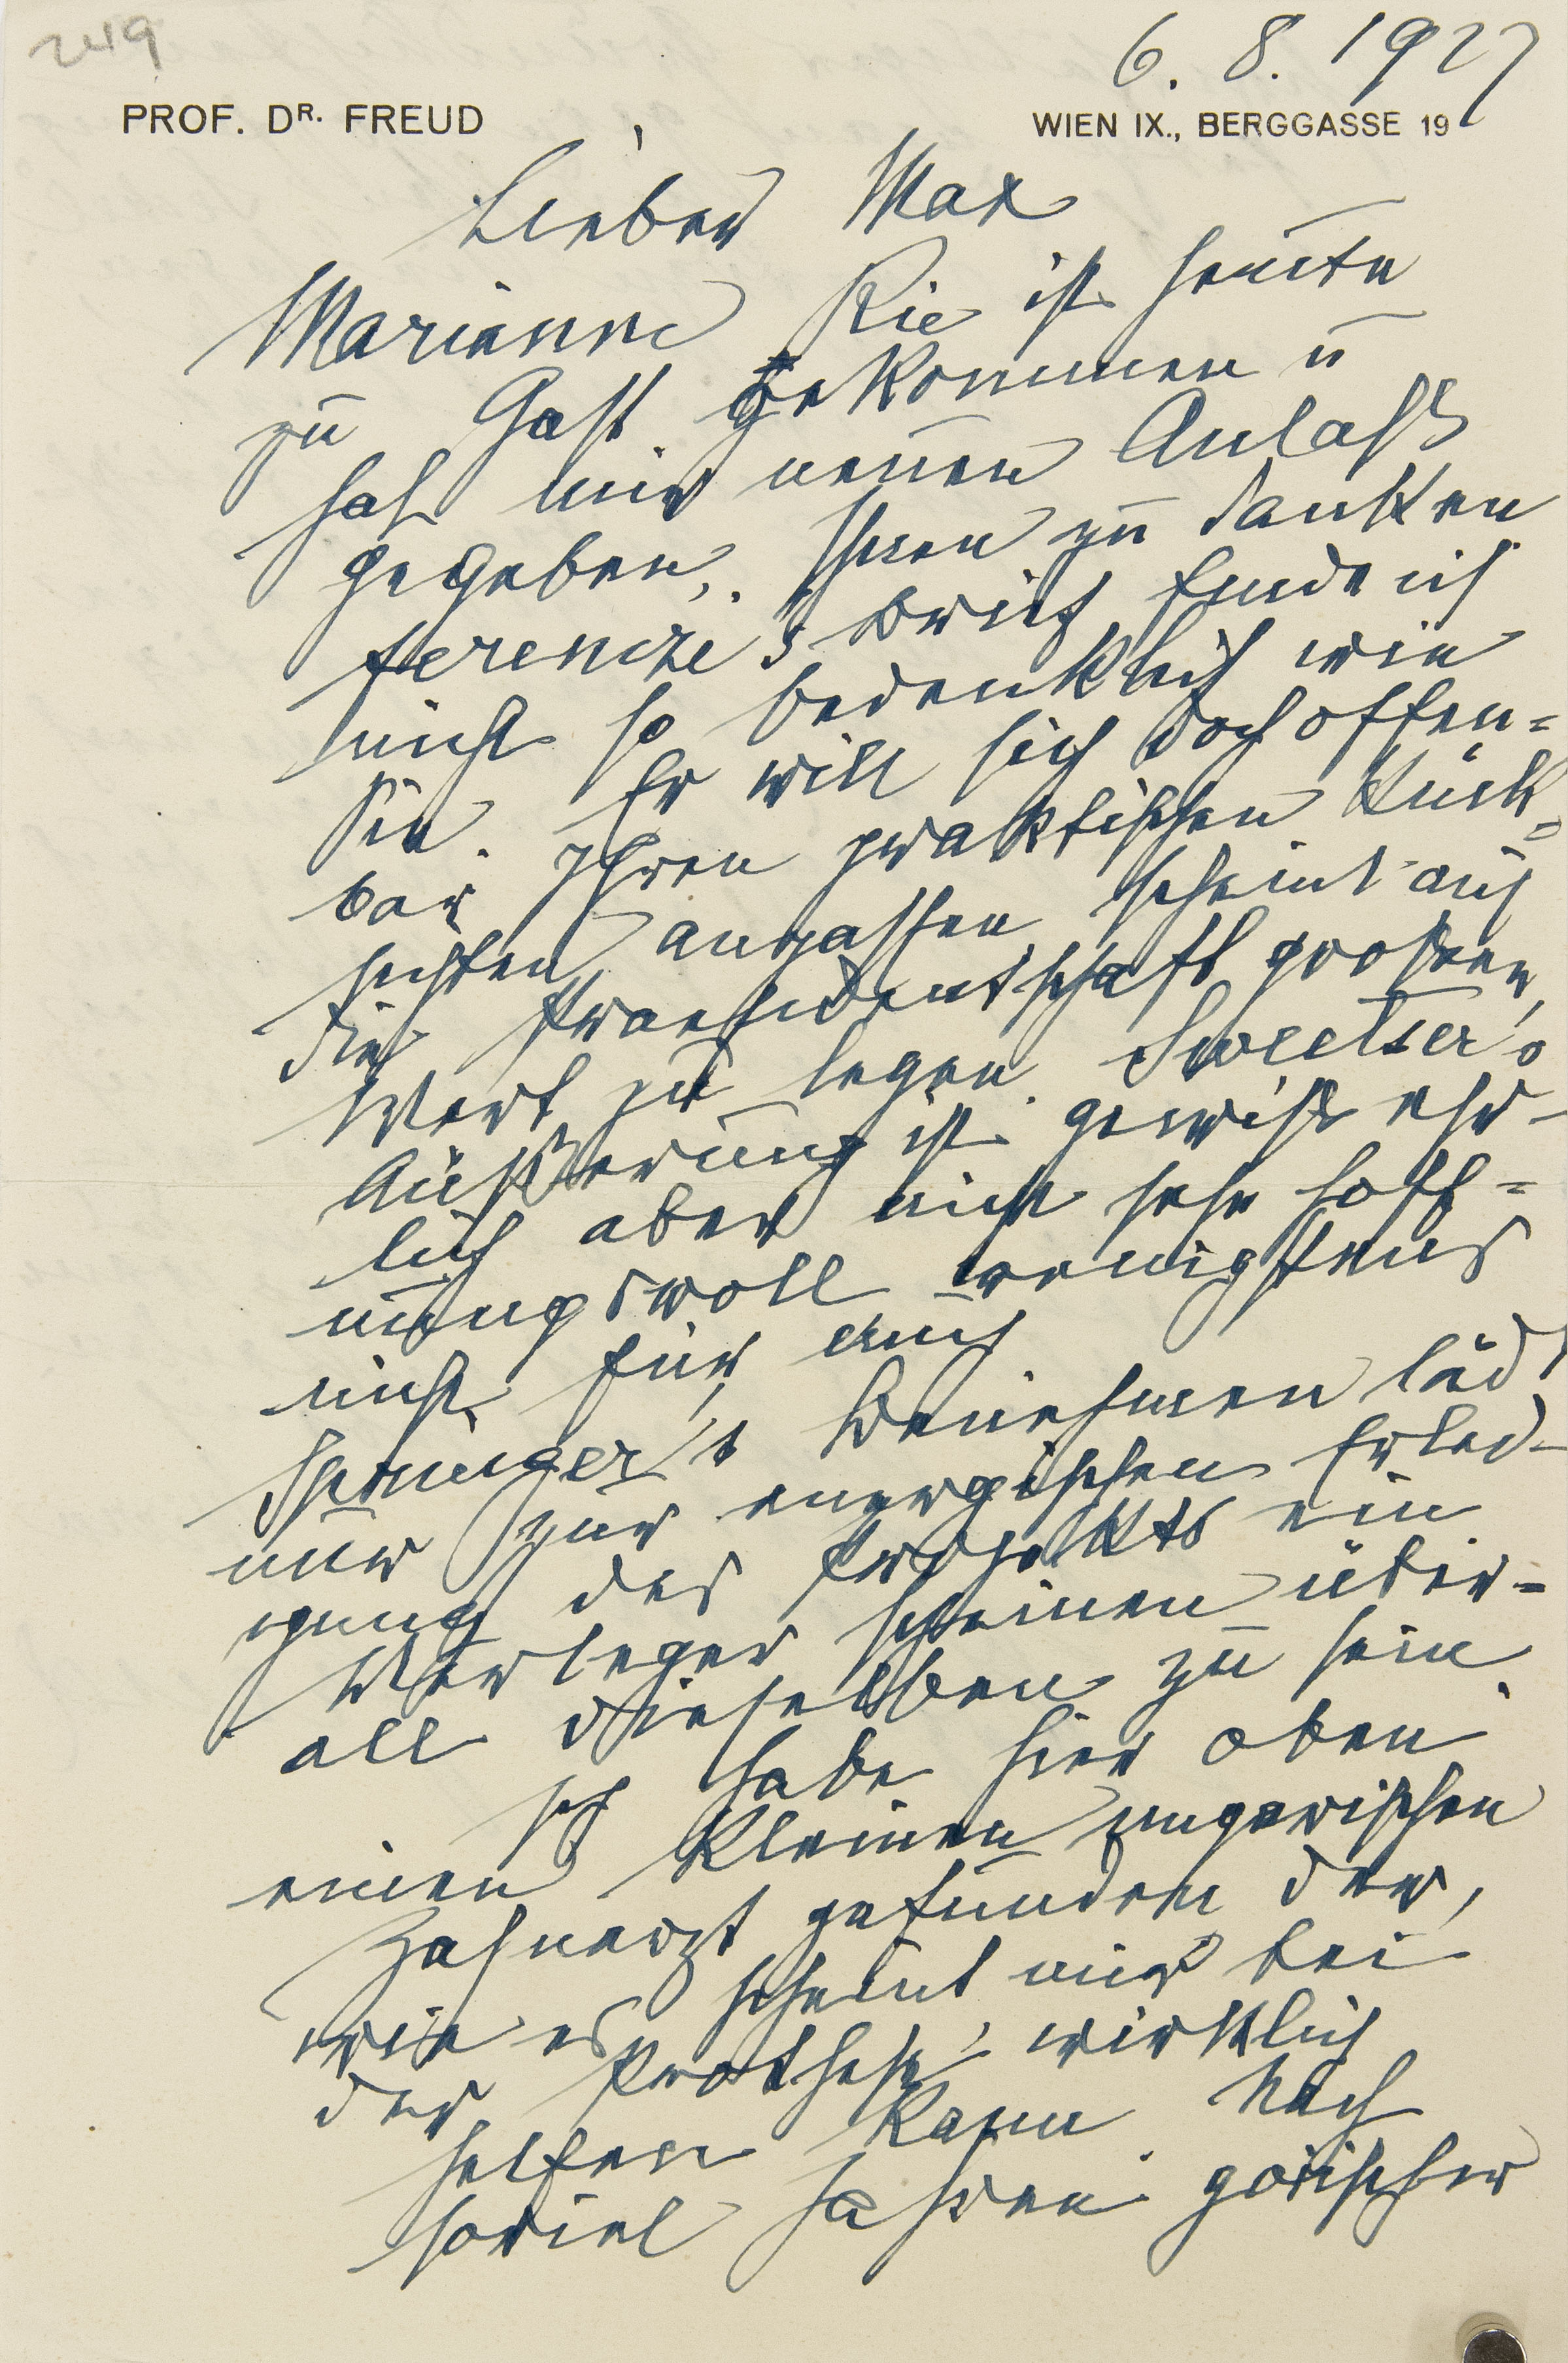 249
6. 8. 1927
PROF. DR. FREUD WIEN IX., BERGGASSE 19
Lieber Max
Marianne Rie ist heute
zu Gast gekommen u
hat mir neuen Anlaß
gegeben, Ihnen zu danken.
Ferenczi's Brief finde ich
nicht so bedenklich wie
Sie. Er will sich doch offen=
bar Ihren praktischen Rück=
sichten anpassen, scheint auf
die Praesidentschaft großen
Wert zu legen. Sweetser's
Äußerung ist gewiß ehr-
lich aber nicht sehr hoff=
nungsvoll wenigstens
nicht für
Springer's Benehmen läd't
nur zur energischen Erled-
igung des Projekts ein
Verleger scheinen über=
all dieselben zu sein.
Ich habe hier oben
einen kleinen ungarischen
Zahnarzt gefunden der,
wie es scheint mir bei
der Prothese wirklich
helfen kann. Nach
soviel Jahren